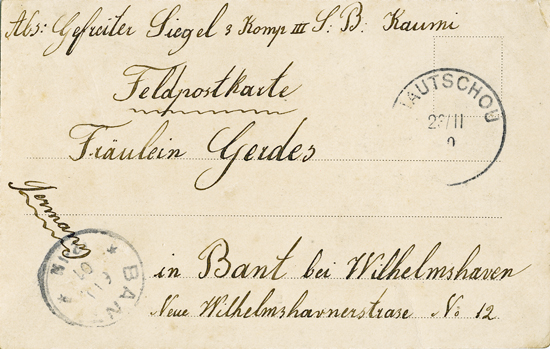 Abs: Gefreiter Siegel 3 Komp III S. B. Kaumi
Feldpostkarte
Fräulein Gerdes
AUTSCHOU
23/11
Germany
in Bant bei Wilhelmshaven
Neue Wilhelmshavnerstrase No 12.
BANT